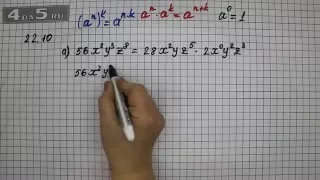 4DA5.RU
(aⁿ)ᵏ = aⁿ·ᵏ aⁿ · aᵏ = aⁿ⁺ᵏ a⁰ = 1
22.10
а) 56x²y³z⁸ = 28x²yz⁵ · 2x⁰y²z³
56x²y